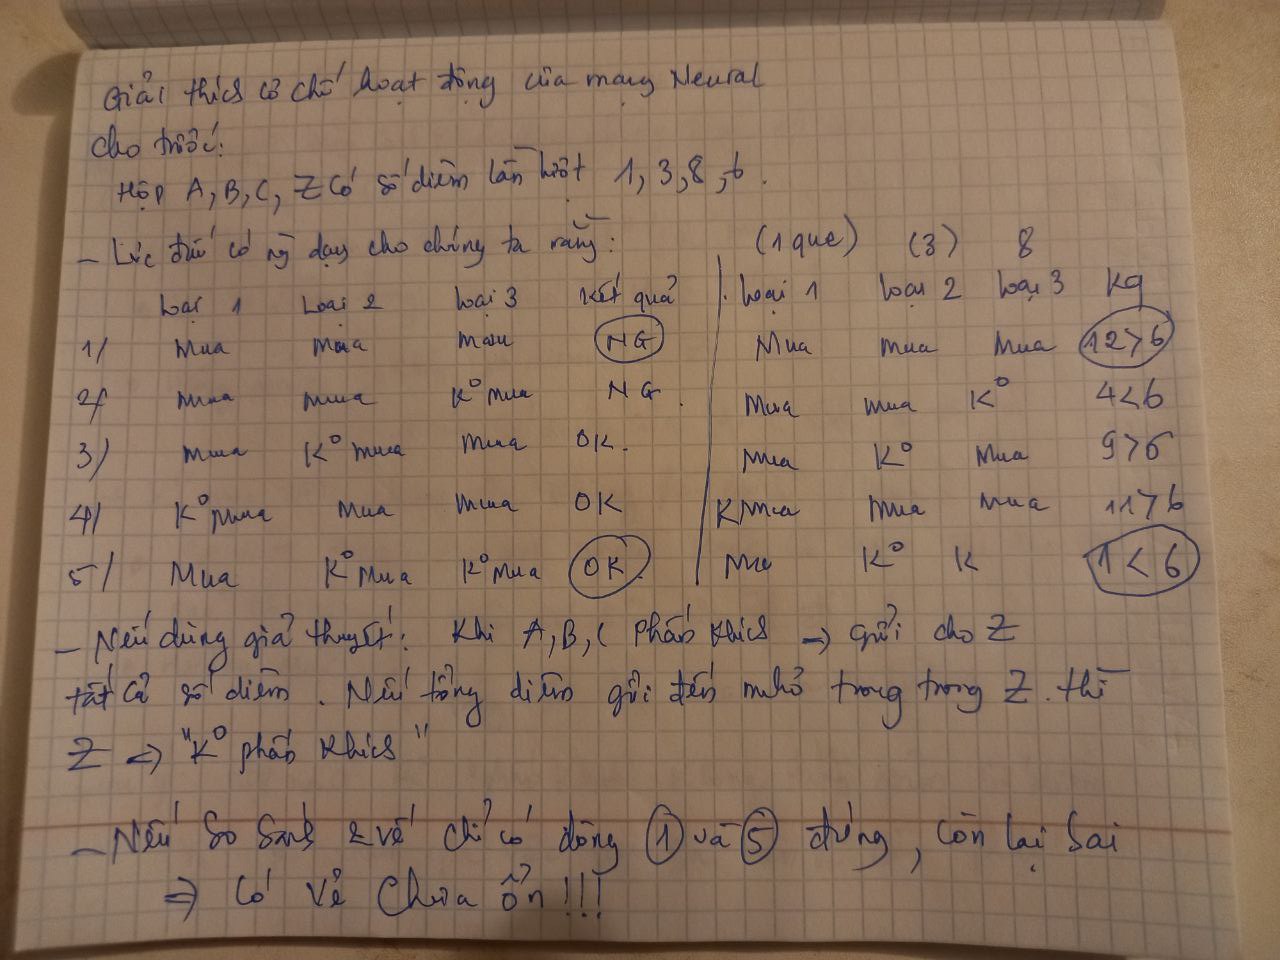 Giải thích cơ chế hoạt động của mạng Neural
Cho trước:
Hộp A, B, C, Z có số diêm lần lượt 1, 3, 8, 6.
- Lúc đầu có ng dạy cho chúng ta rằng: (1 que) (3) 8
Loại 1 Loại 2 Loại 3 Kết quả Loại 1 Loại 2 Loại 3 Kq
1/ Mua Mua Mua NG Mua Mua Mua 12>6
2/ Mua Mua K° mua NG. Mua Mua K° 4<6
3) Mua K° mua Mua OK. Mua K° Mua 9>6
4) K° mua Mua Mua OK Kmua Mua Mua 11>6
5/ Mua K° Mua K° mua OK. Mua K° K 1<6
- Nếu dùng giả thuyết: Khi A, B, C phấn khích → gửi cho Z
tất cả số diêm. Nếu tổng diêm gửi đến nhỏ trong trong Z. thì
Z <=> "K° phấn khích"
- Nếu So Sánh 2 vế chỉ có dòng 1 và 5 đúng, còn lại Sai
=> Có Vẻ Chưa ổn!!!